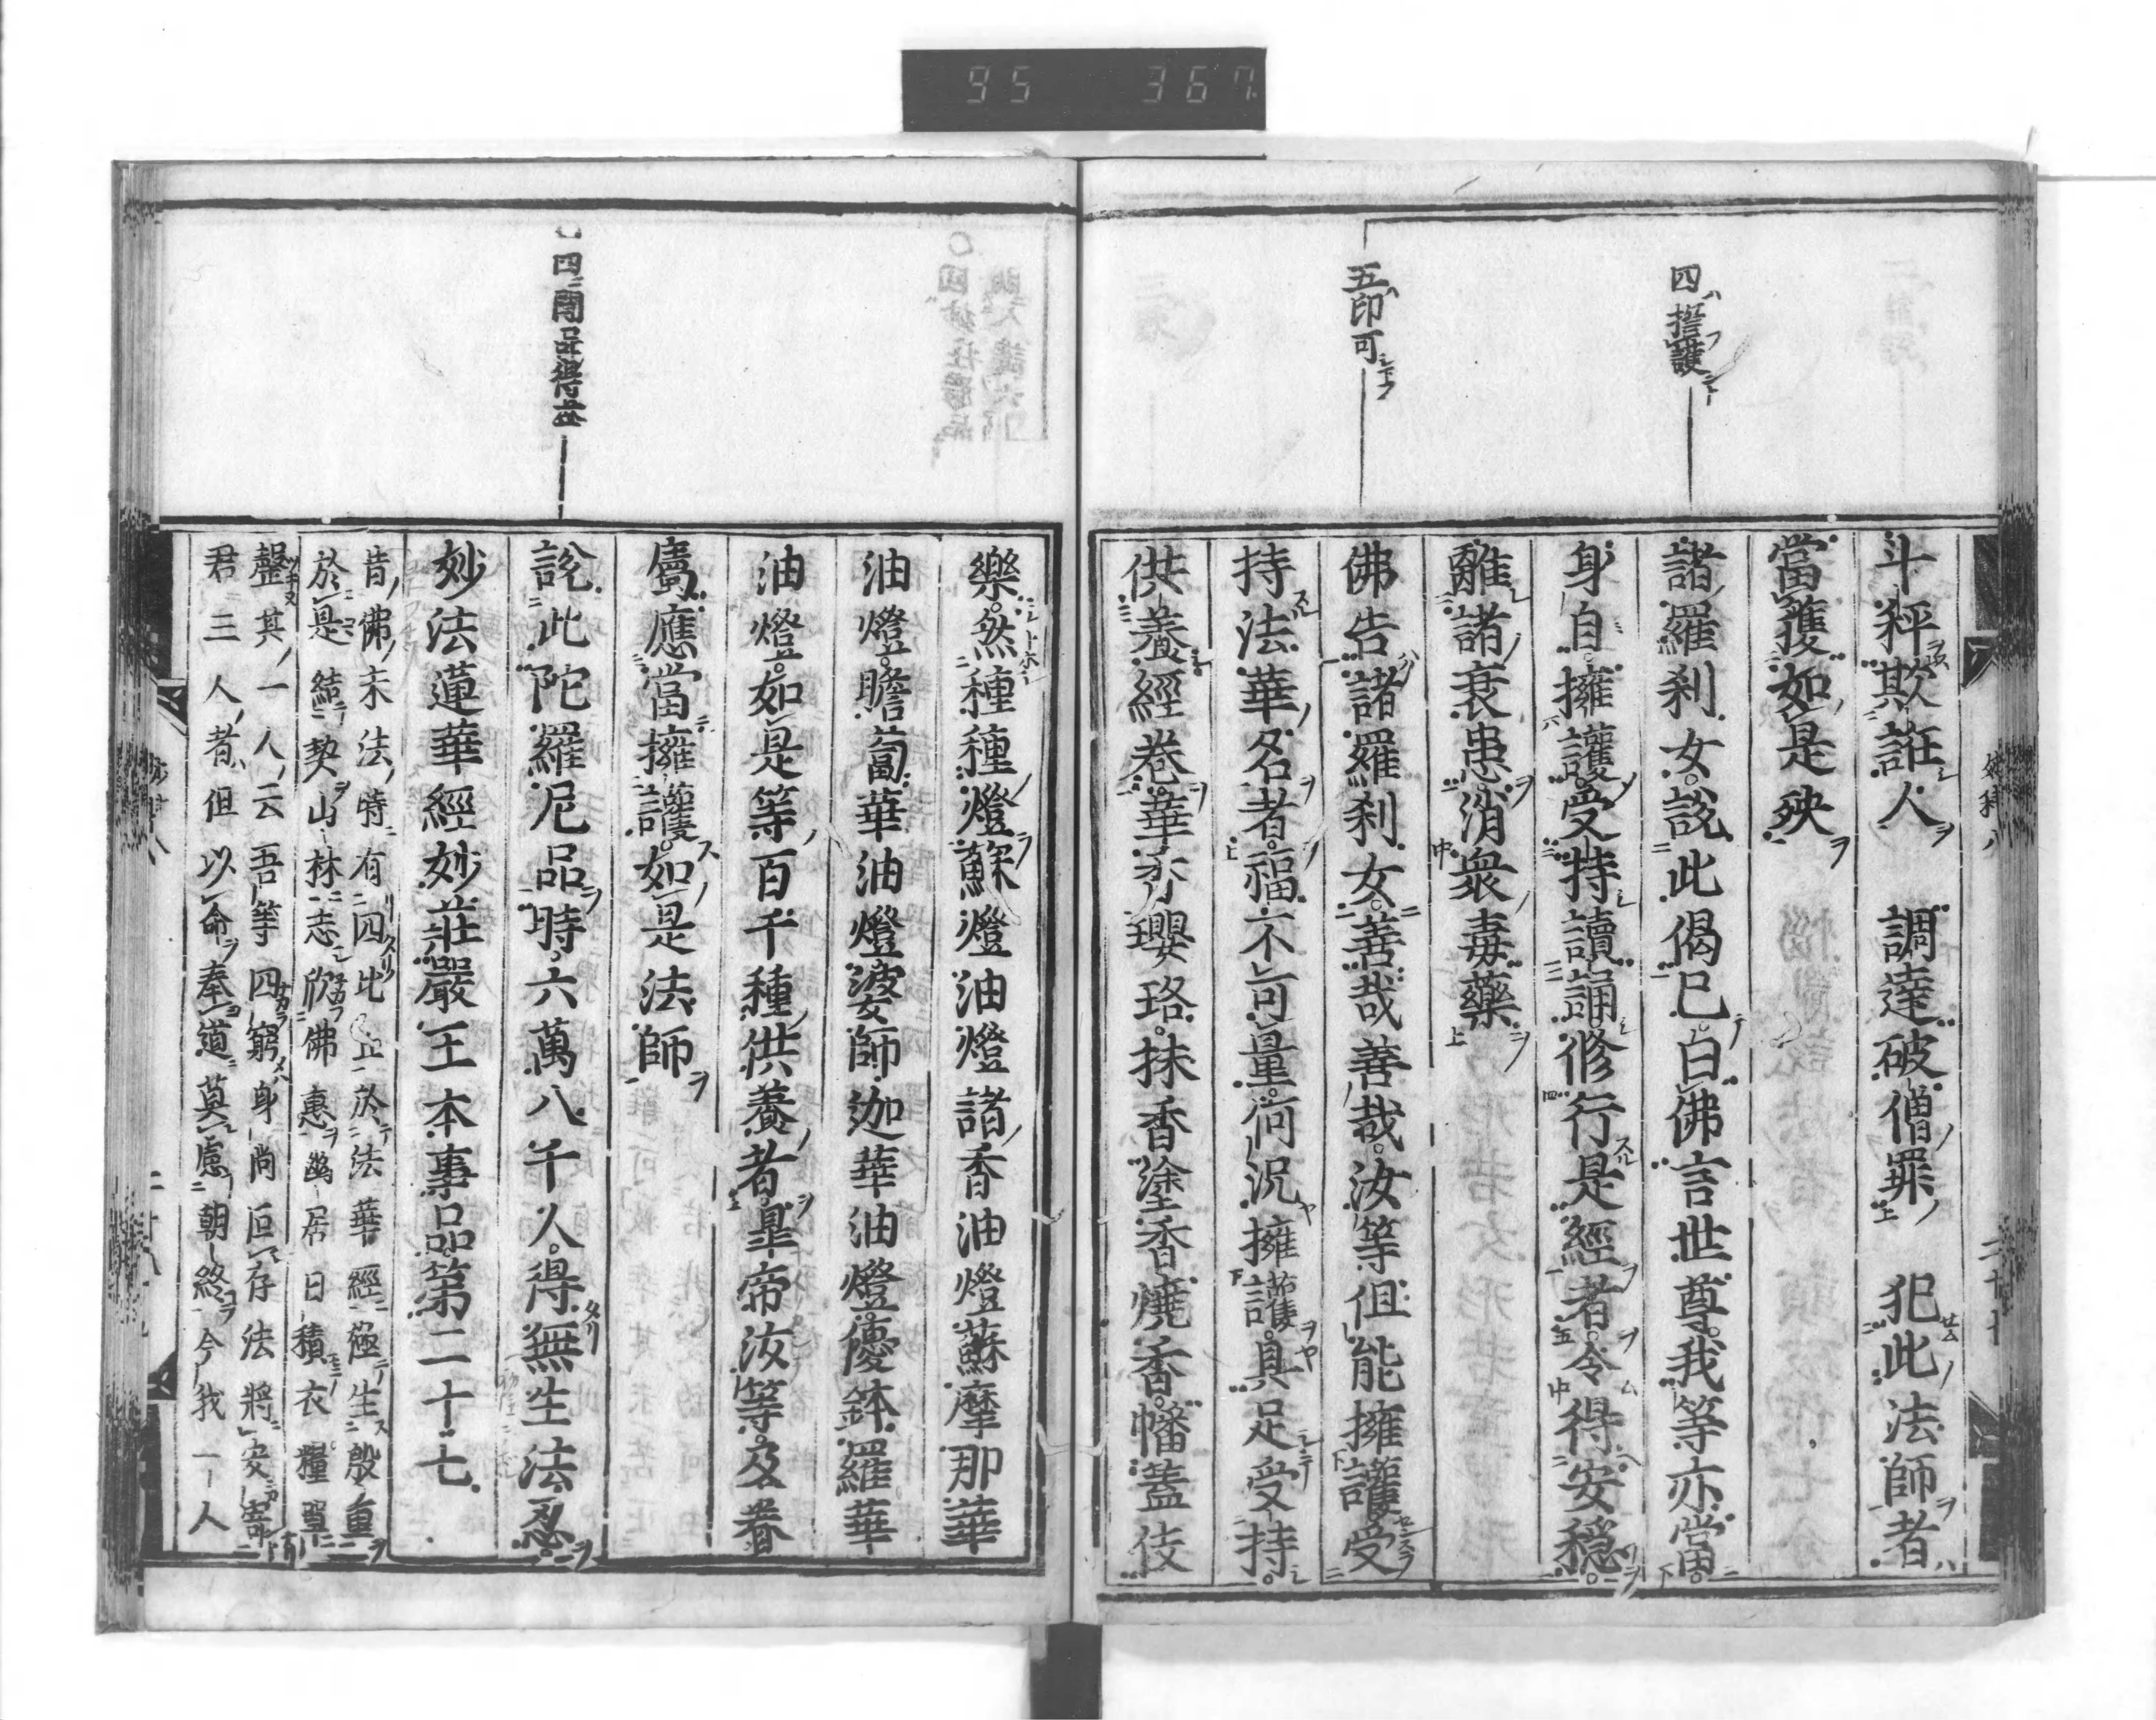 95 367
四誓護
五印可
斗秤欺誑人 調達破僧罪 犯此法師者
當獲如是殃
諸羅刹女說此偈已白佛言世尊我等亦當
身自擁護受持讀誦修行是經者令得安穩
離諸衰患消衆毒藥
佛告諸羅刹女善哉善哉汝等但能擁護受
持法華名者福不可量何況擁護具足受持
供養經卷華香瓔珞抹香塗香燒香幡蓋伎
四聞品得益
樂然種種燈蘇燈油燈諸香油燈蘇摩那華
油燈瞻蔔華油燈婆師迦華油燈優鉢羅華
油燈如是等百千種供養者臯帝汝等及眷
屬應當擁護如是法師
說此陀羅尼品時六萬八千人得無生法忍
妙法蓮華經妙莊嚴王本事品第二十七
昔佛末法時有四比丘於法華經極生殷重
於是結契山林志欣佛惠幽居日積衣糧單
罄其一人云吾等四窮身尚叵存法將安寄
君三人者但以命奉道莫慮朝終今我一人